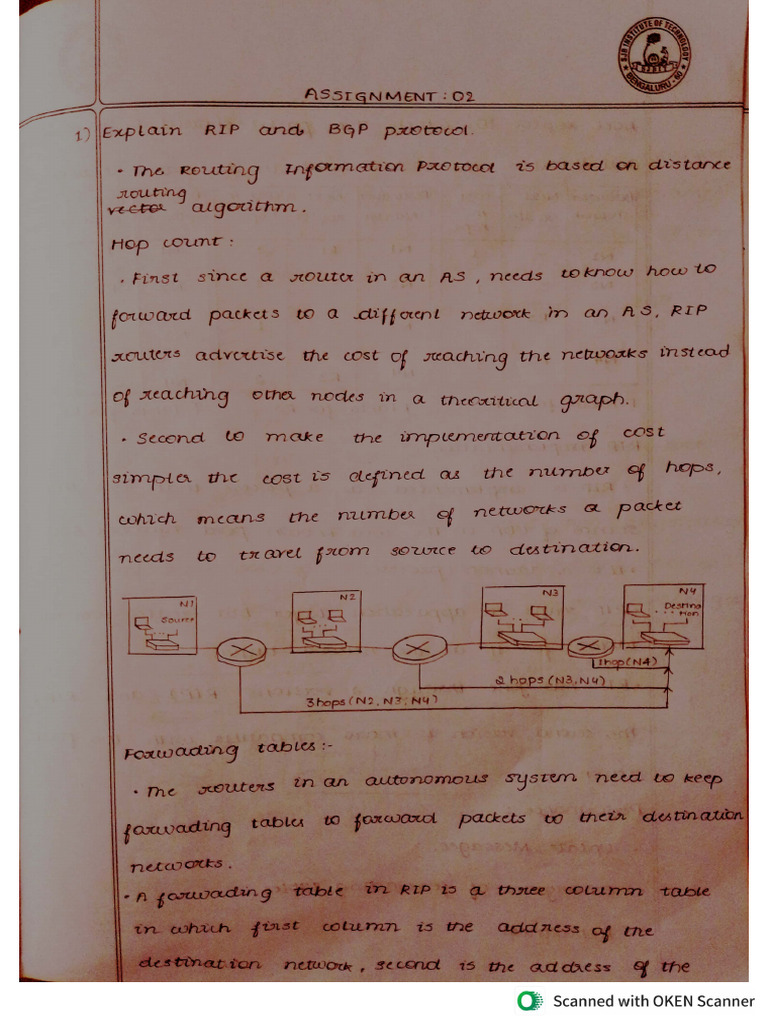 BJB INSTITUTE OF TECHNOLOGY
BENGALURU - 60
ASSIGNMENT : 02
1) Explain RIP and BGP protocol.
• The Routing Information Protocol is based on distance
routing
vector algorithm.
Hop count :
• First since a router in an AS, needs to know how to
forward packets to a different network in an AS, RIP
routers advertise the cost of reaching the networks instead
of reaching other nodes in a theoritical graph.
• Second to make the implementation of cost
simpler the cost is defined as the number of hops,
which means the number of networks a packet
needs to travel from source to destination.
N1
Source
N2
N3
N4
Destina
tion
1hop(N4)
2 hops (N3,N4)
3hops (N2, N3, N4)
Forwading tables :-
• The routers in an autonomous system need to keep
forwading tables to forward packets to their destination
networks.
• A forwading table in RIP is a three column table
in which first column is the address of the
destination network, second is the address of the
Scanned with OKEN Scanner